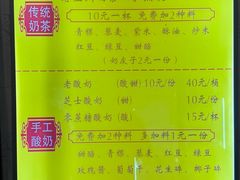 传统
奶茶
10元一杯 免费加2种料
青稞、藜麦、紫米、酥油、炒米
红豆、绿豆、甜醅
(奶皮子2元一份)
老酸奶 (酸 甜) 10元/份 40元/桶
芝士酸奶 (甜) 10元/份
零蔗糖酸奶 (酸) 15元/杯
手工
酸奶
免费加2种料 多加料1元一份
甜醅、青稞、藜麦、红豆、绿豆
玫瑰酱、葡萄干、花生碎、椰子碎